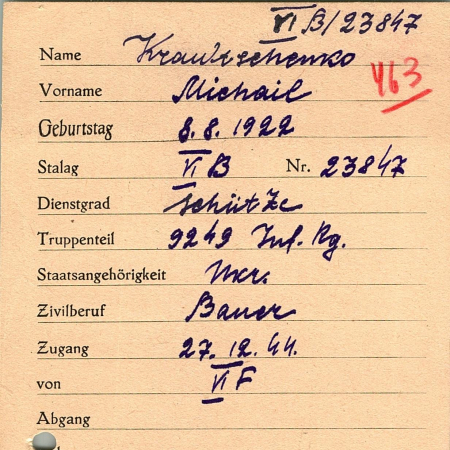 VI B/23847
Name Krawtschenko
463
Vorname Michail
Geburtstag 8.8.1922
Stalag VI B Nr. 23847
Dienstgrad Schütze
Truppenteil 9249 Inf. Rg.
Staatsangehörigkeit Ukr.
Zivilberuf Bauer
Zugang 27.12.44.
von VI F
Abgang